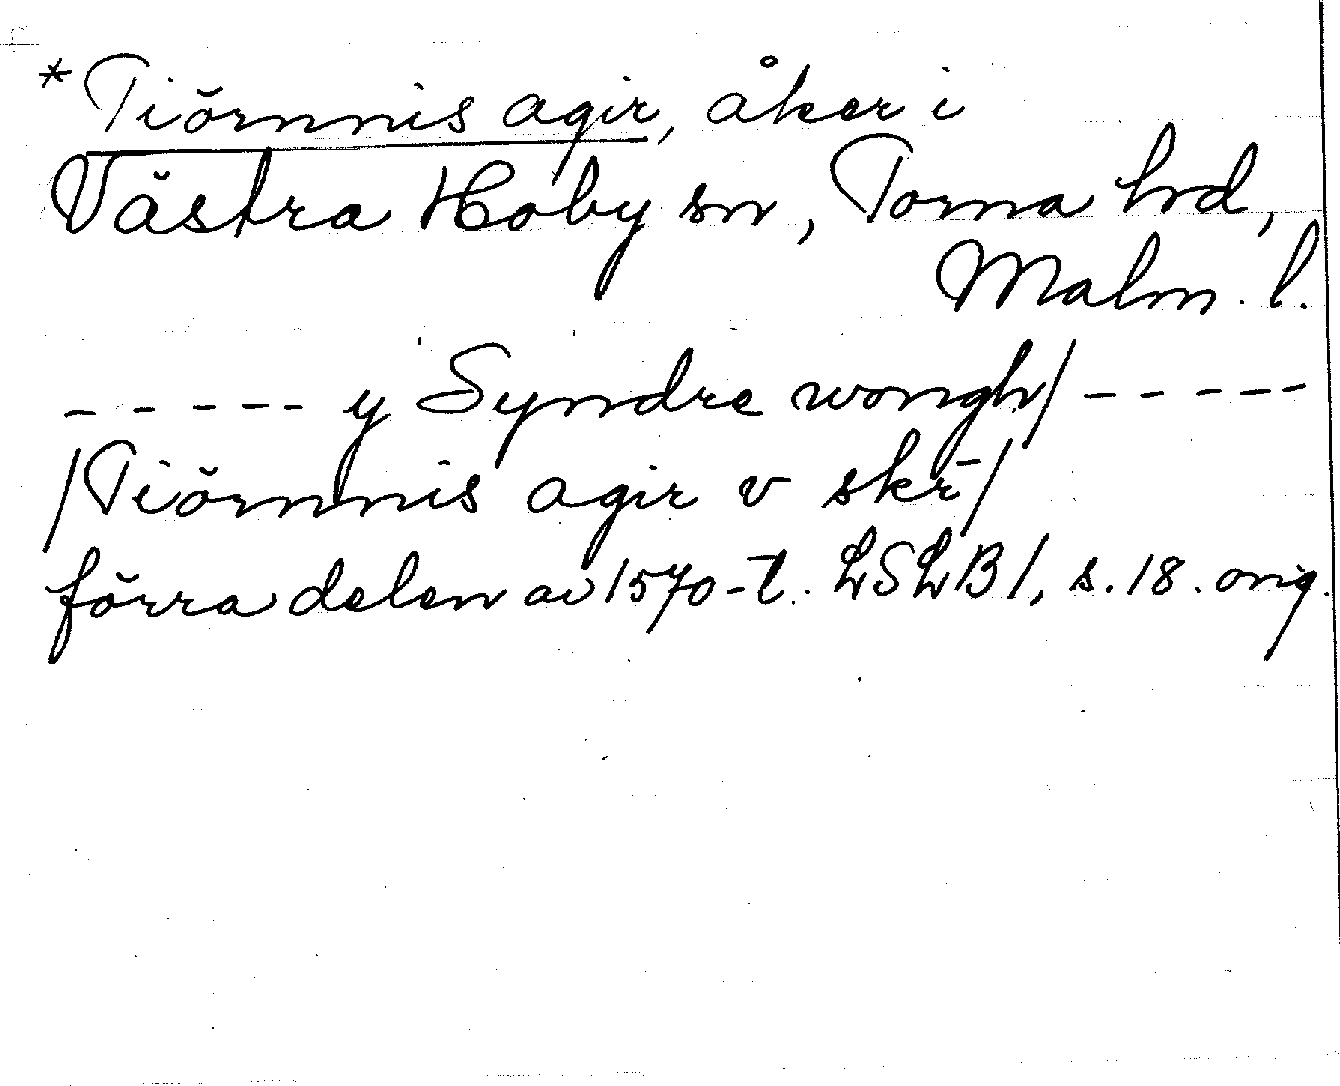 *Tiörnnis agir, åker i
Västra Hoby sn, Torna hrd,
Malm. l.
- - - - - y Syndre wongh/ - - - - -
/Tiörnnis agir v skr̄/
förra delen av 1570-t. LSLB 1, s. 18. orig.